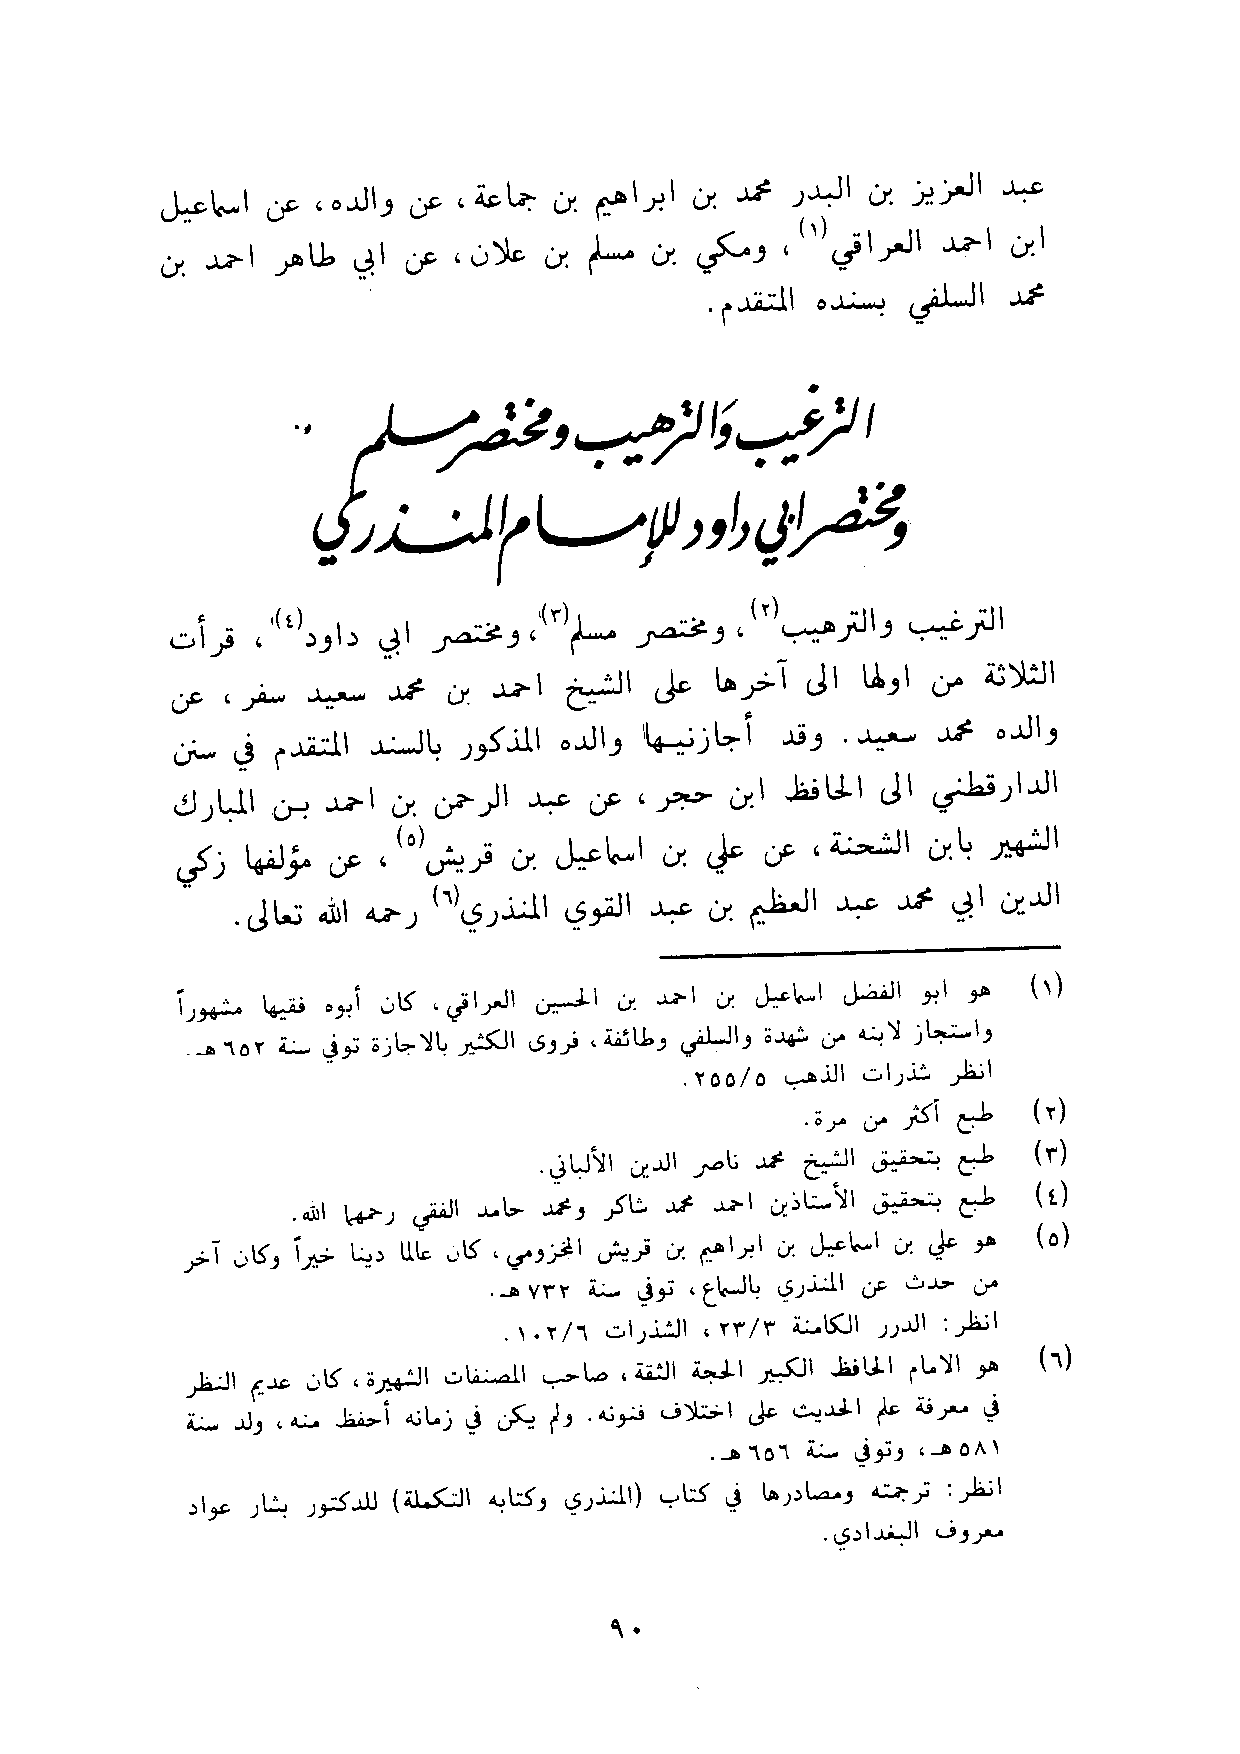 عبد العزيز بن البدر محمد بن ابراهيم بن جماعة ، عن والده ، عن اسماعيل
ابن احمد العراقي(١) ، ومكي بن مسلم بن علان ، عن ابي طاهر احمد بن
محمد السلفي بسنده المتقدم .
الترغيب والترهيب ومختصر مسلم
ومختصر ابي داود للإمام المنذري
الترغيب والترهيب(٢) ، ومختصر مسلم(٣) ، ومختصر ابي داود(٤) ، قرأت
الثلاثة من اولها الى آخرها على الشيخ احمد بن محمد سعيد سفر ، عن
والده محمد سعيد . وقد أجازنيها والده المذكور بالسند المتقدم في سنن
الدارقطني الى الحافظ ابن حجر ، عن عبد الرحمن بن احمد بن المبارك
الشهير بابن الشحنة ، عن علي بن اسماعيل بن قريش(٥) ، عن مؤلفها زكي
الدين ابي محمد عبد العظيم بن عبد القوي المنذري(٦) رحمه الله تعالى .
(١) هو ابو الفضل اسماعيل بن احمد بن الحسين العراقي ، كان أبوه فقيها مشهوراً
واستجاز لابنه من شهدة والسلفي وطائفة ، فروى الكثير بالاجازة توفي سنة ٦٥٢ هـ .
انظر شذرات الذهب ٢٥٥/٥ .
(٢) طبع أكثر من مرة .
(٣) طبع بتحقيق الشيخ محمد ناصر الدين الألباني .
(٤) طبع بتحقيق الأستاذين احمد محمد شاكر ومحمد حامد الفقي رحمهما الله .
(٥) هو علي بن اسماعيل بن ابراهيم بن قريش المخزومي ، كان عالما دينا خيراً وكان آخر
من حدث عن المنذري بالسماع ، توفي سنة ٧٣٢ هـ .
انظر : الدرر الكامنة ٢٣/٣ ، الشذرات ١٠٢/٦ .
(٦) هو الامام الحافظ الكبير الحجة الثقة ، صاحب المصنفات الشهيرة ، كان عديم النظر
في معرفة علم الحديث على اختلاف فنونه . ولم يكن في زمانه أحفظ منه ، ولد سنة
٥٨١ هـ ، وتوفي سنة ٦٥٦ هـ .
انظر : ترجمته ومصادرها في كتاب (المنذري وكتابه التكملة) للدكتور بشار عواد
معروف البغدادي .
٩٠